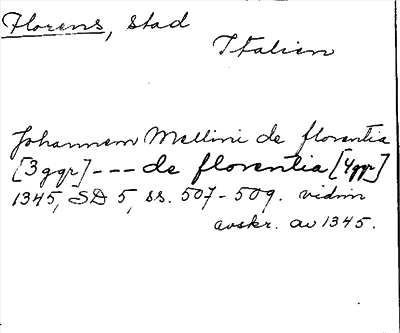 Florens, stad
Italien
Johannem Mellini de florentia
[3 ggr] --- de florentia [4 ggr]
1345, SD 5, ss. 507-509. vidim
avskr. av 1345.